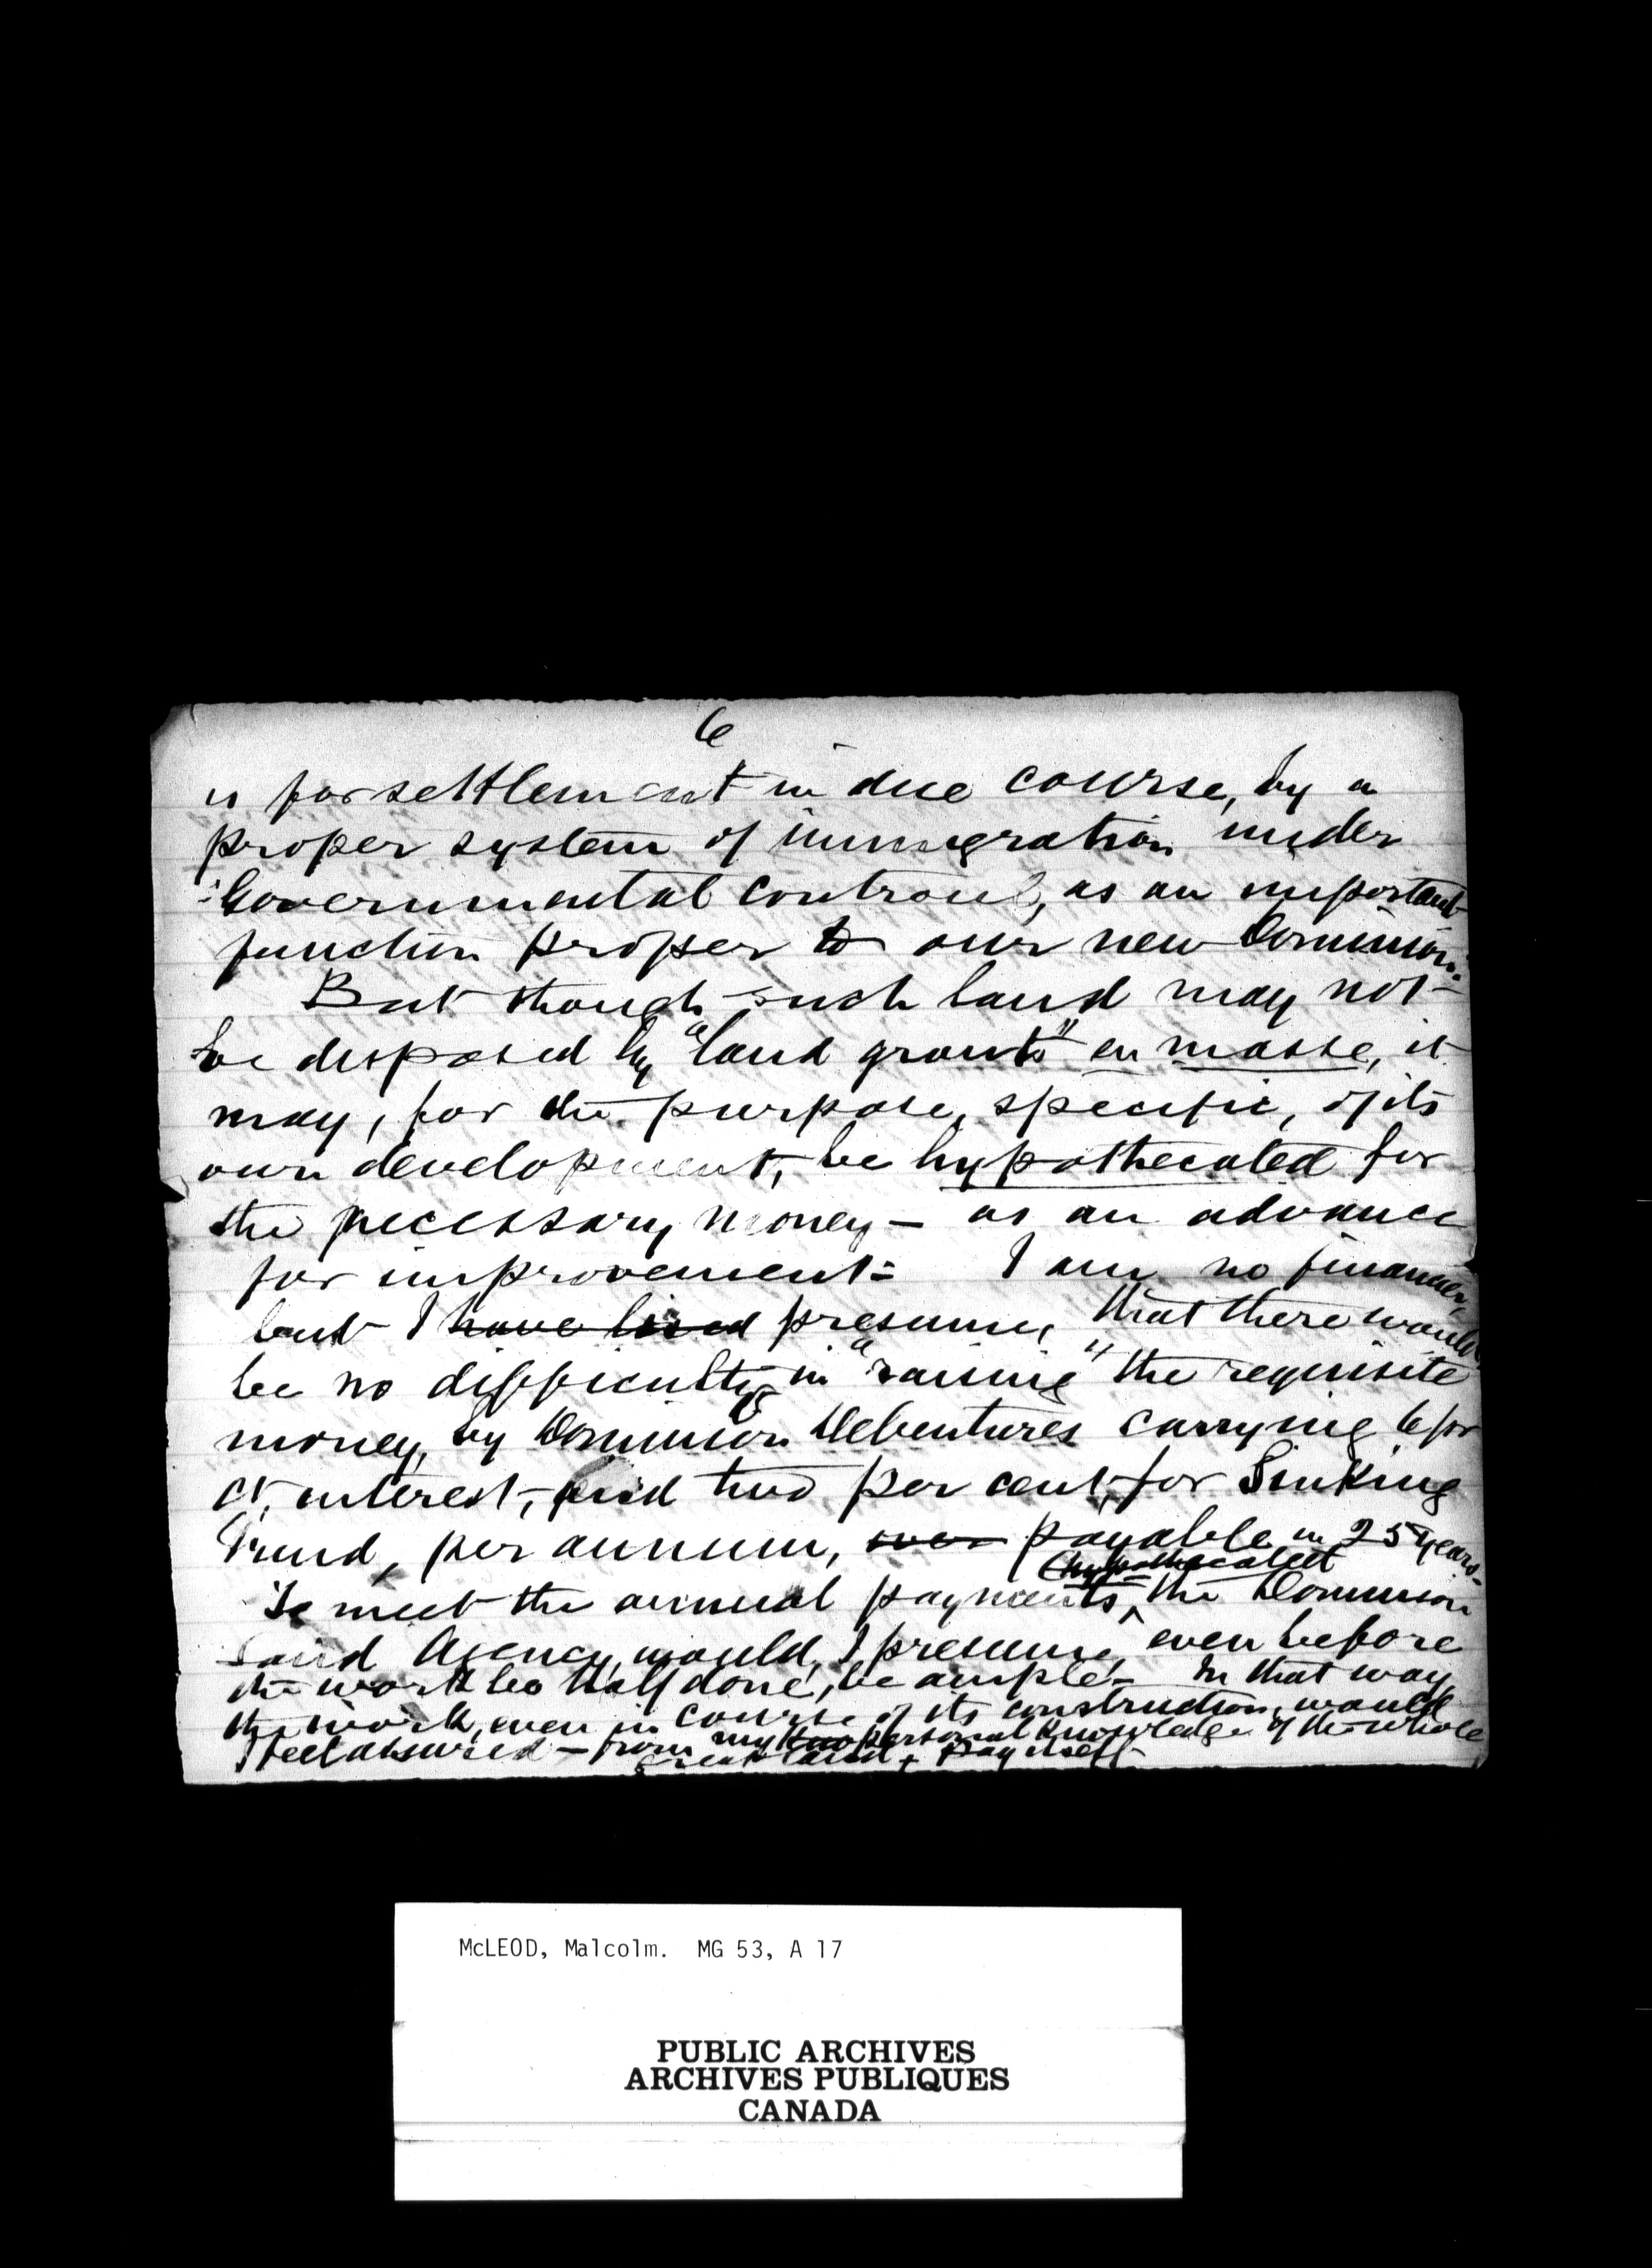 6
is for settlement in due course, by a
proper system of immigration under
Governmental controul, as an important
function proper to our new Dominion.
But though such land may not
be disposed by "land grants" en masse, it
may, for the purpose, specific, of its
own development, be hypothecated for
the necessary money – as an advance
for improvement. I am no financier,
but I have lived presume, that there would
be no difficulty in "raising" the requisite
money, by Dominion Debentures carrying 6 pr
ct. interest, and two per cent, for Sinking
Fund, per annum, over payable in 25 years.
(hypothecated
To meet the annual payments, ^ the Dominion
Land Agency would, I presume, even before
the work be half done, be ample. In that way
the work, even in course of its construction, would
I feel assured – from my kno personal knowledge of the whole
great land + pay itself.
McLEOD, Malcolm. MG 53, A 17
PUBLIC ARCHIVES
ARCHIVES PUBLIQUES
CANADA